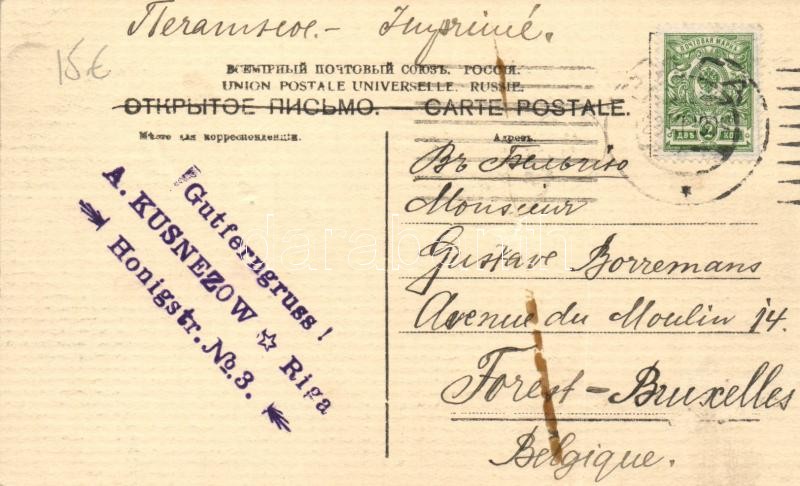 Печатное.- Imprimé.
15€
ВСЕМІРНЫЙ ПОЧТОВЫЙ СОЮЗЪ. РОССІЯ.
UNION POSTALE UNIVERSELLE. RUSSIE.
ОТКРЫТОЕ ПИСЬМО. — CARTE POSTALE.
Мѣсто для корреспонденціи.
Адресъ.
ПОЧТОВАЯ МАРКА
ДВѢ 2 КОП
Въ Бельгію
Monsieur
Gustave Borremans
Avenue du Moulin 14.
Forest-Bruxelles
Belgique.
Gutferngruss!
A. KUSNEZOW ☆ Riga
Honigstr. №. 3.
darabanth